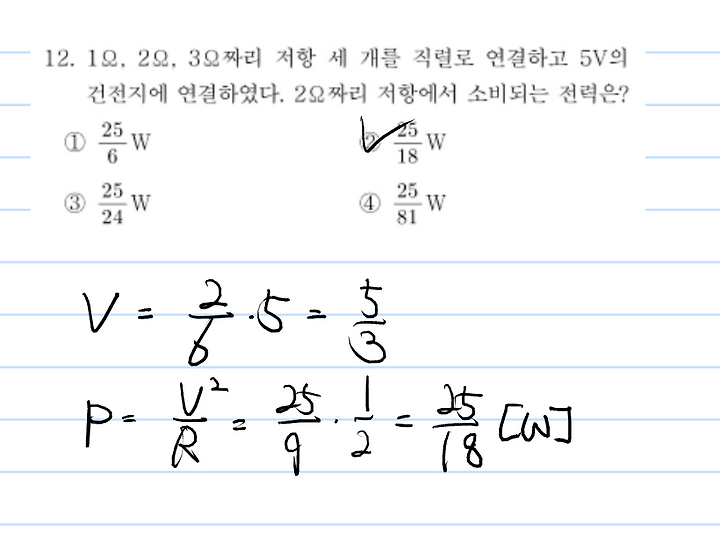 12. 1Ω, 2Ω, 3Ω짜리 저항 세 개를 직렬로 연결하고 5V의
건전지에 연결하였다. 2Ω짜리 저항에서 소비되는 전력은?
① 25/6 W ② 25/18 W
③ 25/24 W ④ 25/81 W
V = 2/6 · 5 = 5/3
P = V²/R = 25/9 · 1/2 = 25/18 [W]